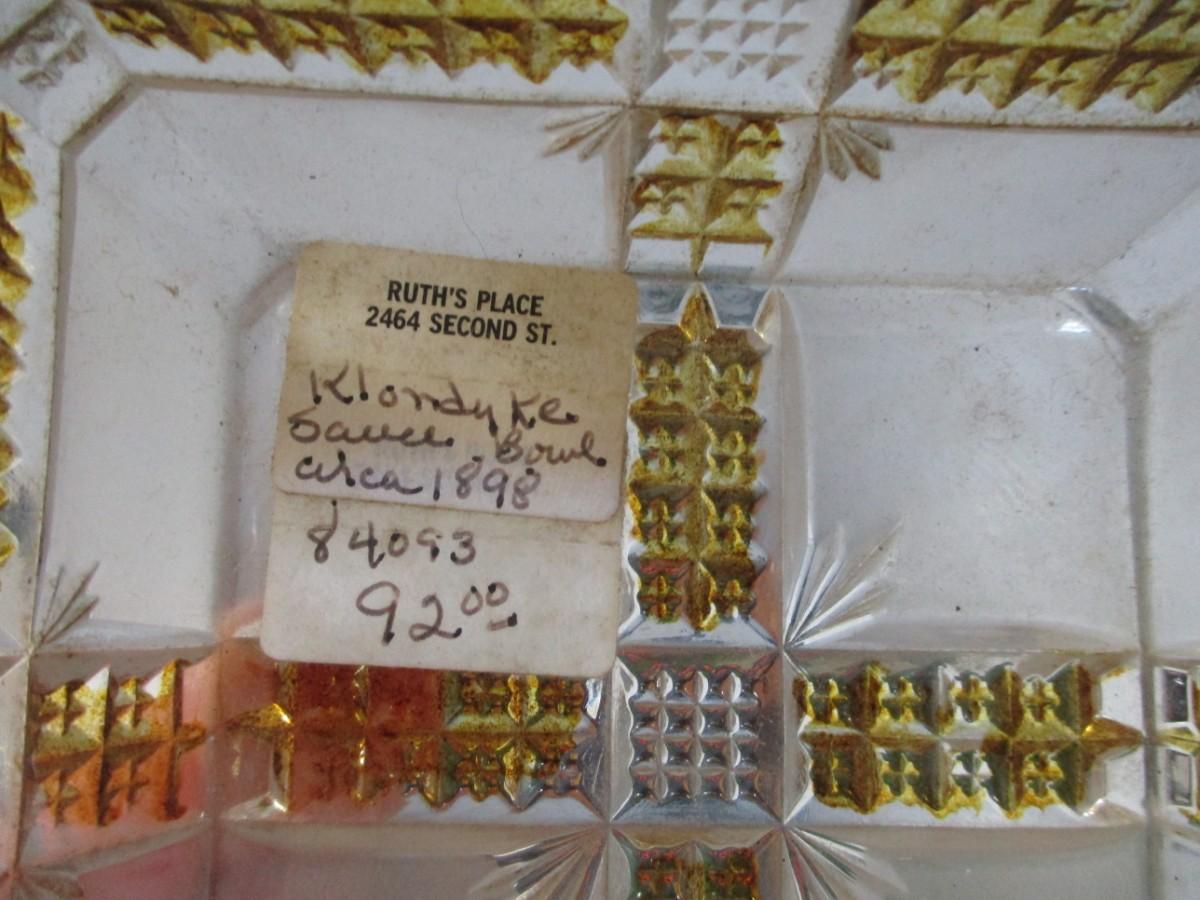 RUTH'S PLACE
2464 SECOND ST.
Klondyke
Sauce Bowl
circa 1898
84093
92.00